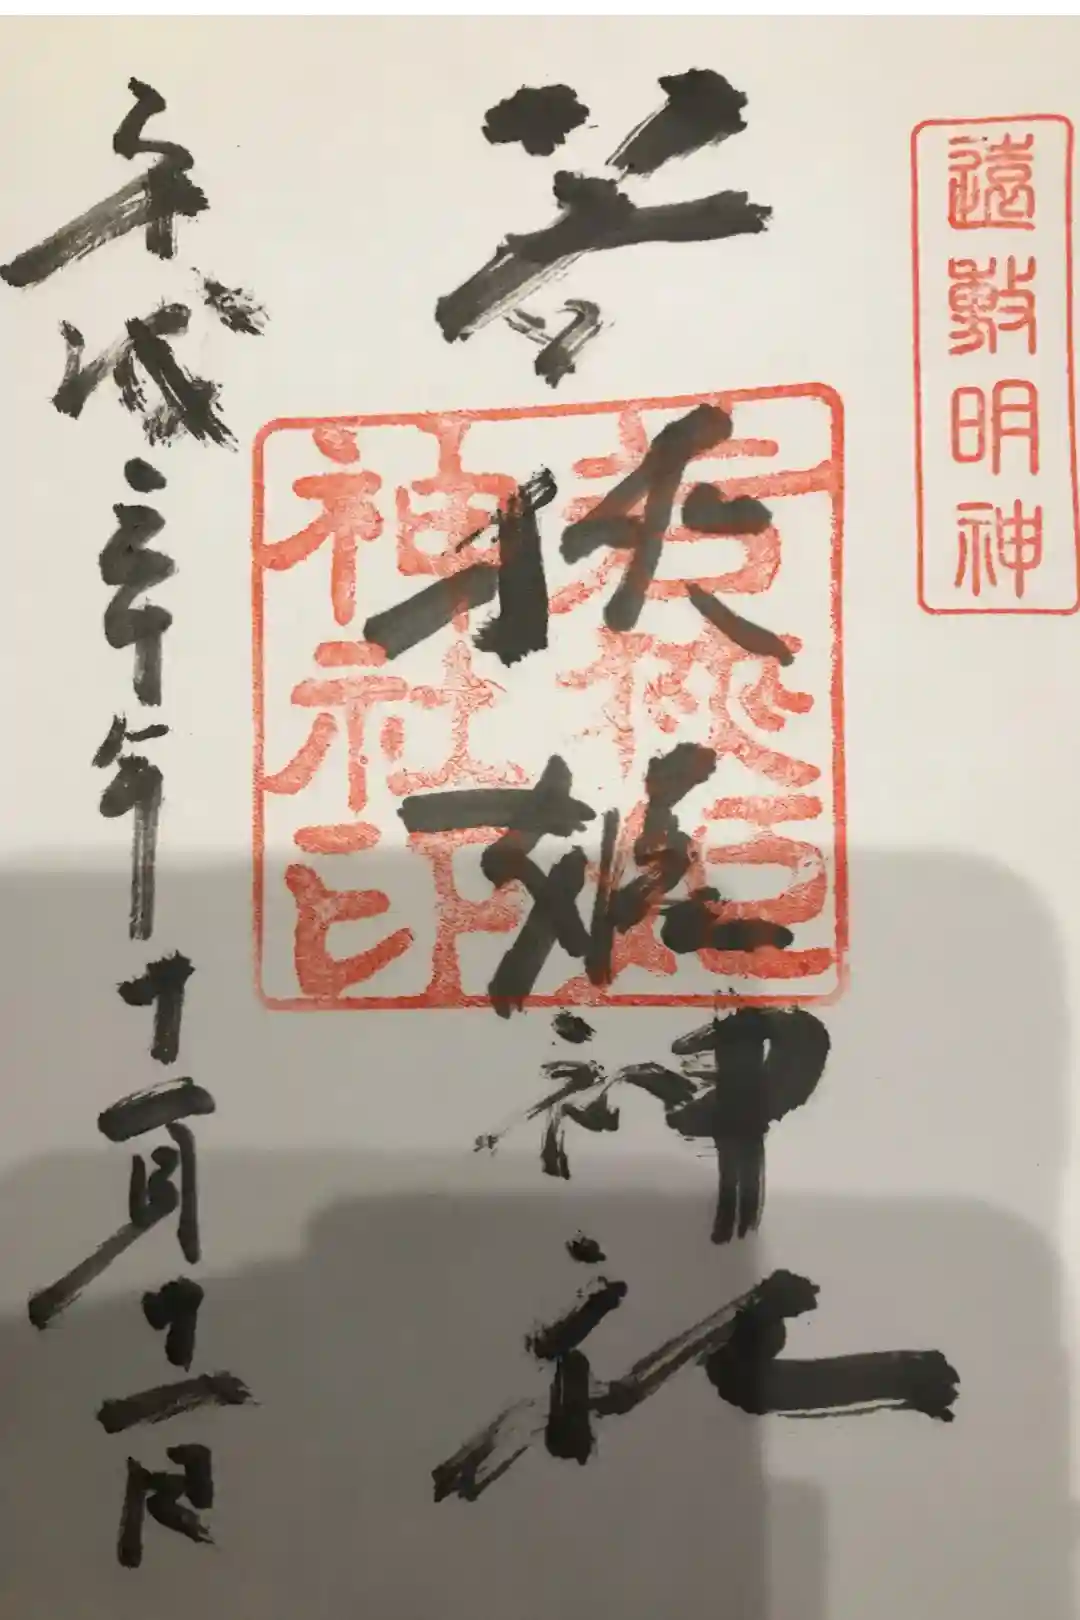 遠敷明神
若狭姫神社
若狭姫
神社印
平成三十年十一月十一日